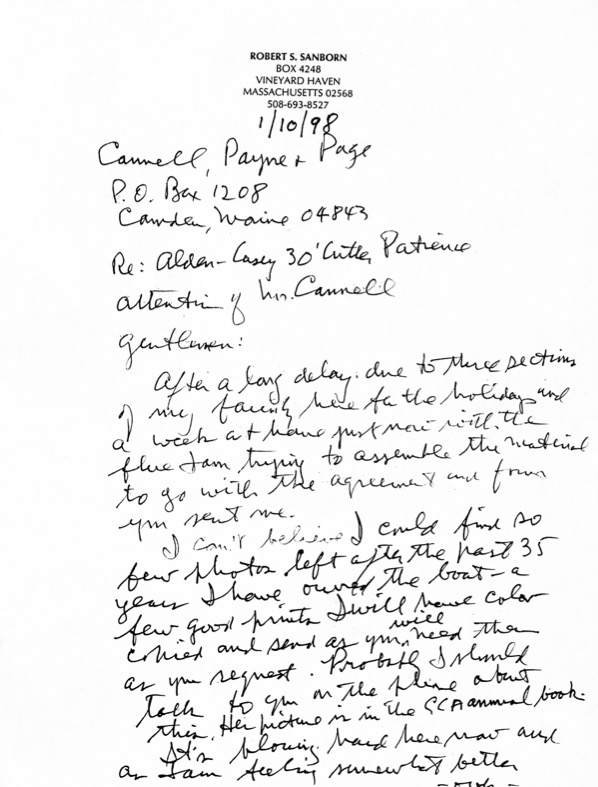 ROBERT S. SANBORN
BOX 4248
VINEYARD HAVEN
MASSACHUSETTS 02568
508-693-8527
1/10/98
Cannell, Payne + Page
P.O. Box 1208
Camden, Maine 04843
Re: Alden-Casey 30' Cutter Patience
attention of Mr. Cannell
Gentlemen:
After a long delay due to three sections
of my family here for the holidays and
a week at home just now with the
flu I am trying to assemble the material
to go with the agreement and form
you sent me.
I can't believe I could find so
few photos left after the past 35
years I have owned the boat - a
few good prints I will have color
copied and send as you will need them
as you request. Probably I should
talk to you on the phone about
this. Her picture is in the CCA annual book.
It's blowing hard here now and
as I am feeling somewhat better